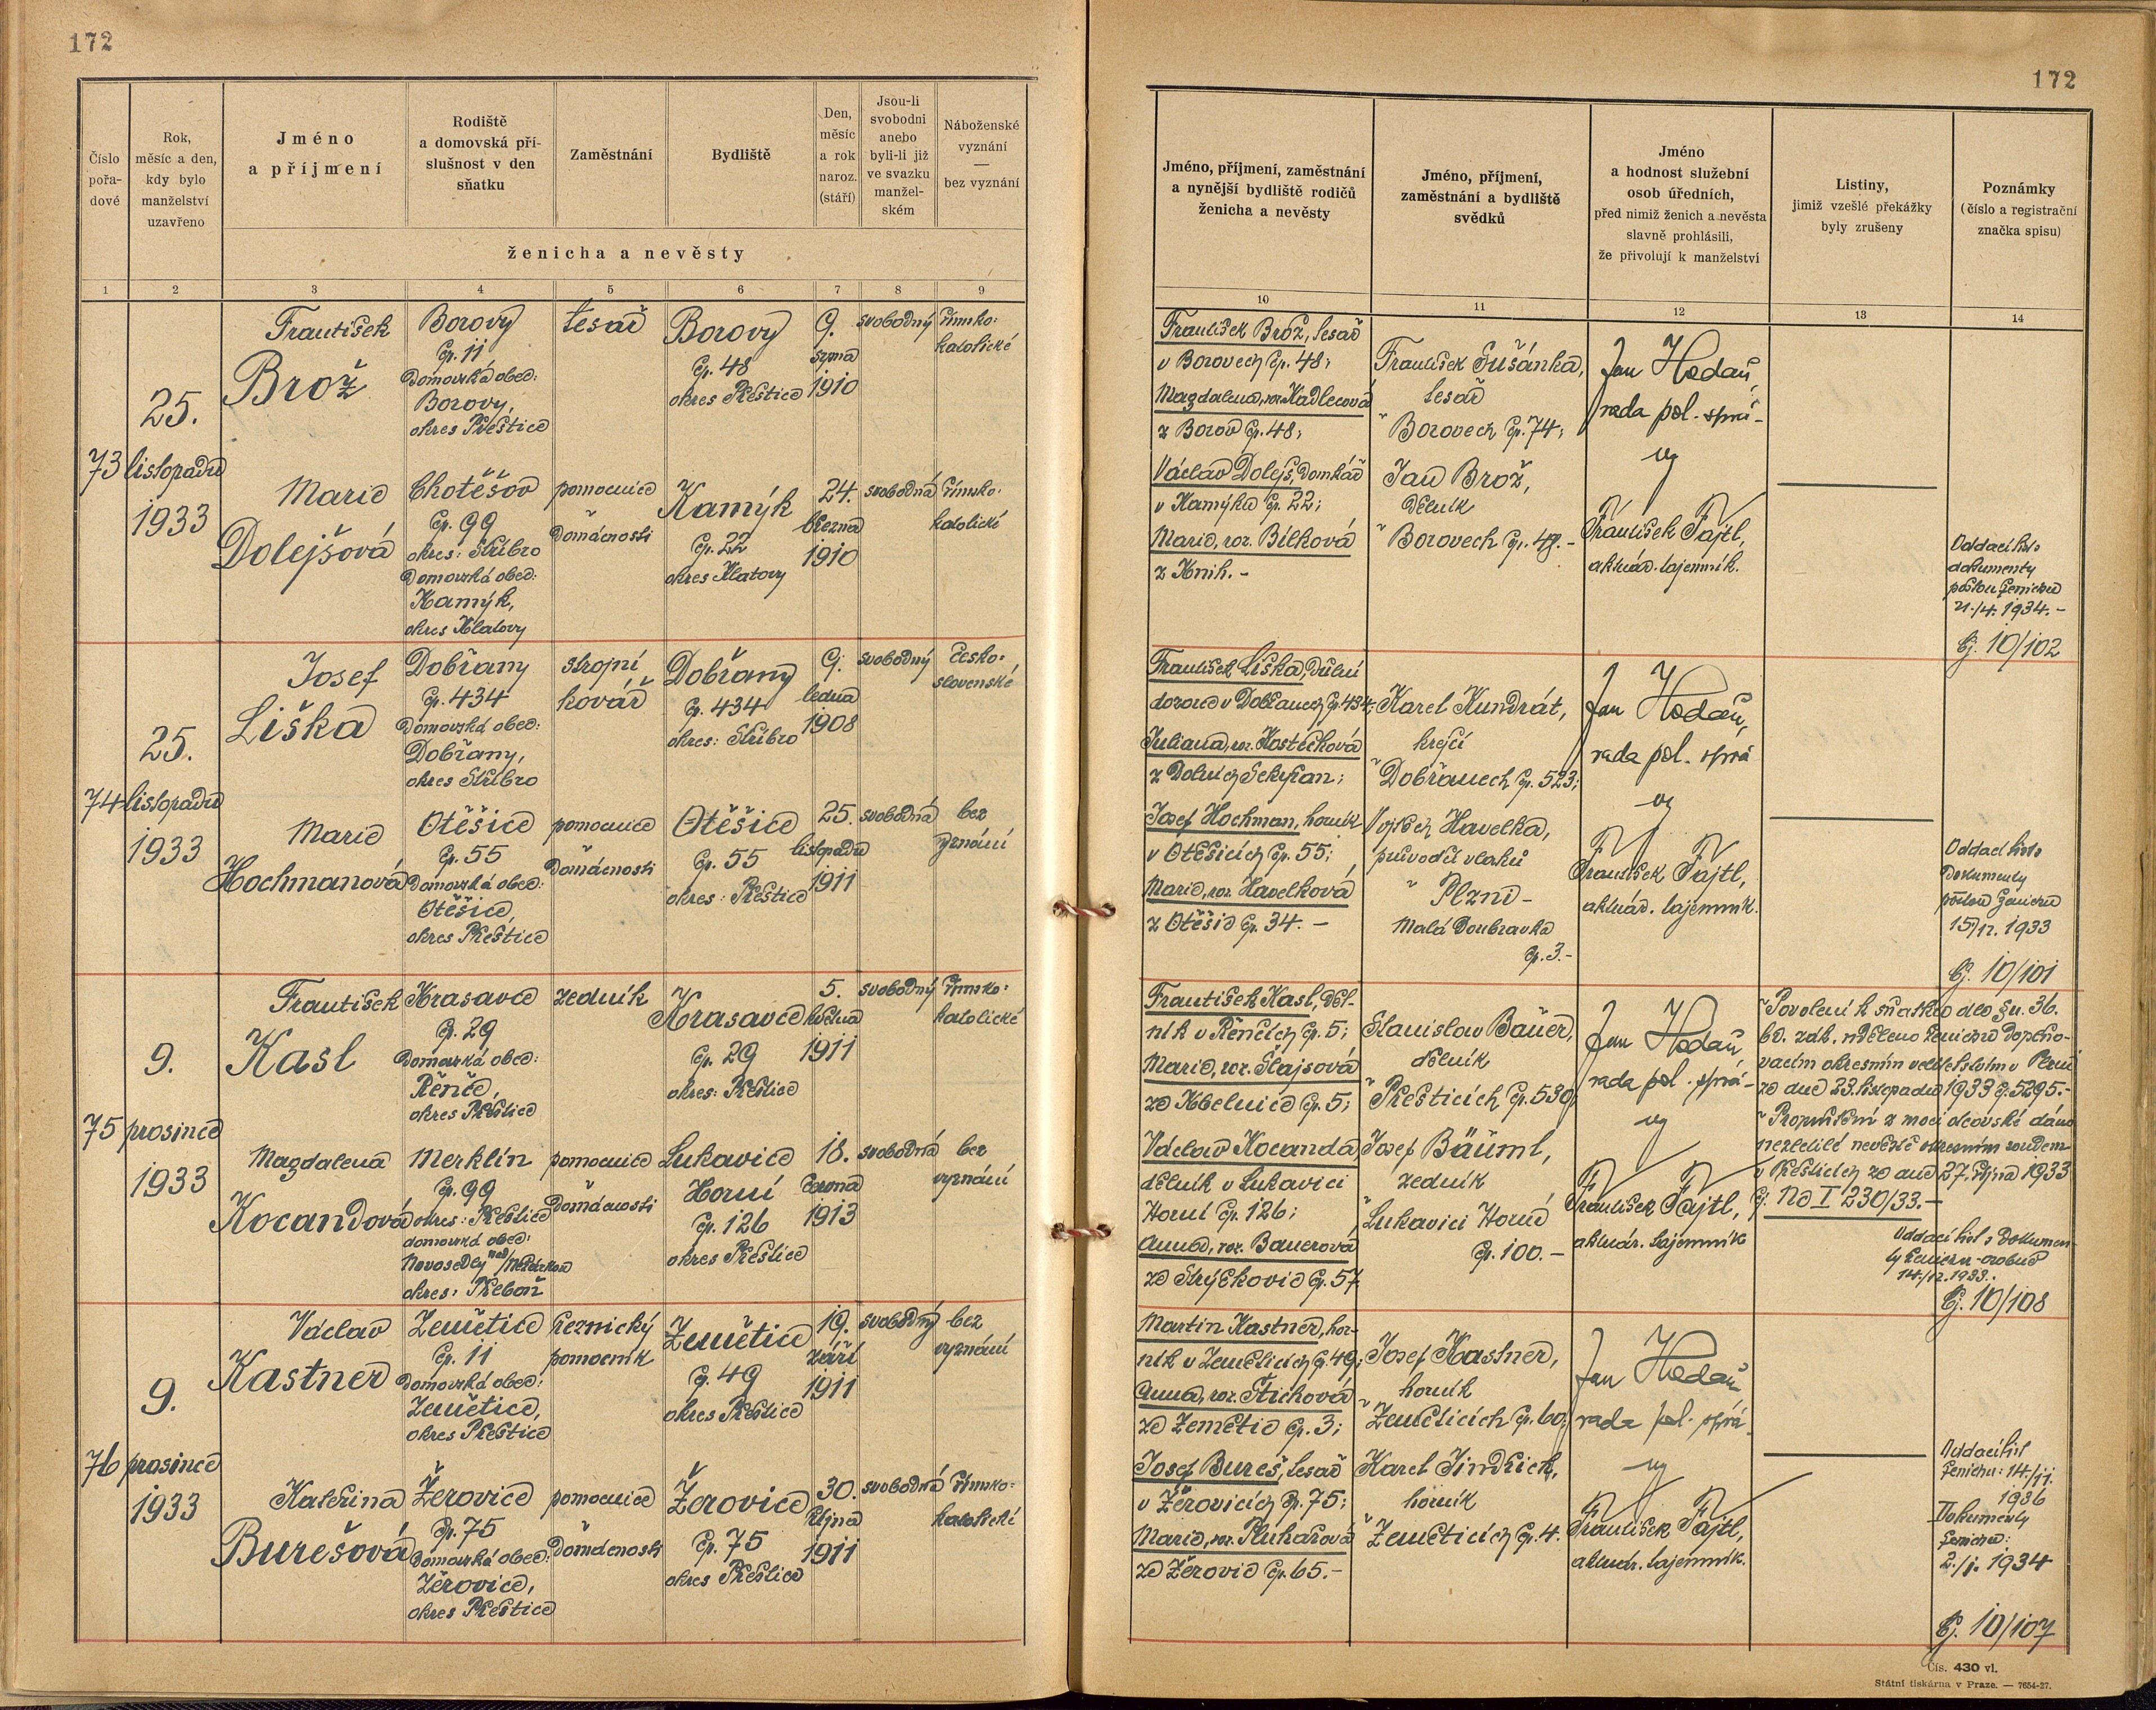 172
Číslo pořa-dové
Rok, měsíc a den, kdy bylo manželství uzavřeno
Jméno a příjmení
Rodiště a domovská pří-slušnost v den sňatku
Zaměstnání
Bydliště
Den, měsíc a rok naroz. (stáří)
Jsou-li svobodni anebo byli-li již ve svazku manžel-ském
Náboženské vyznání — bez vyznání
ženicha a nevěsty
1 2 3 4 5 6 7 8 9
73
25.
listopadu
1933
František
Brož
Borovy
čp. 11
Domovská obec:
Borovy,
okres Přeštice
tesař
Borovy
čp. 48
okres Přeštice
9.
srpna
1910
svobodný
římsko-
katolické
Marie
Dolejšová
Chotěšov
čp. 99
okres: Stříbro
Domovská obec:
Kamýk,
okres Klatovy
pomocnice
v domácnosti
Kamýk
čp. 22
okres Klatovy
24.
března
1910
svobodná
římsko-
katolické
74
25.
listopadu
1933
Josef
Liška
Dobřany
čp. 434
Domovská obec:
Dobřany,
okres Stříbro
strojní
kovář
Dobřany
čp. 434
okres: Stříbro
9.
ledna
1908
svobodný
česko-
slovenské
Marie
Hochmanová
Otěšice
čp. 55
Domovská obec:
Otěšice,
okres Přeštice
pomocnice
v domácnosti
Otěšice
čp. 55
okres: Přeštice
25.
listopadu
1911
svobodná
bez
vyznání
75
9.
prosince
1933
František
Kasl
Krasavce
čp. 29
Domovská obec:
Řenče,
okres Přeštice
zedník
Krasavce
čp. 29
okres: Přeštice
5.
května
1911
svobodný
římsko-
katolické
Magdalena
Kocandová
Merklín
čp. 99
okres: Přeštice
domovská obec:
Novosedly nad/Nežárkou
okres: Třeboň
pomocnice
v domácnosti
Lukavice
Horní
čp. 126
okres Přeštice
18.
června
1913
svobodná
bez
vyznání
76
9.
prosince
1933
Václav
Kastner
Zemětice
čp. 11
Domovská obec:
Zemětice,
okres Přeštice
řeznický
pomocník
Zemětice
čp. 49
okres Přeštice
19.
září
1911
svobodný
bez
vyznání
Kateřina
Burešová
Žerovice
čp. 75
Domovská obec:
Žerovice,
okres Přeštice
pomocnice
v domácnosti
Žerovice
čp. 75
okres Přeštice
30.
října
1911
svobodná
římsko-
katolické
172
Jméno, příjmení, zaměstnání a nynější bydliště rodičů ženicha a nevěsty
Jméno, příjmení, zaměstnání a bydliště svědků
Jméno a hodnost služební osob úředních, před nimiž ženich a nevěsta slavně prohlásili, že přivolují k manželství
Listiny, jimiž vzešlé překážky byly zrušeny
Poznámky (číslo a registrační značka spisu)
10 11 12 13 14
František Brož, tesař
v Borovech čp. 48;
Magdalena, roz. Kadlecová
z Borov čp. 48;
Václav Dolejš, domkář
v Kamýku čp. 22;
Marie, roz. Bílková
z Knih. -
František Sušánka,
tesař
v Borovech čp. 74;
Jan Brož,
dělník
v Borovech čp. 48. -
Jan Hodaň
rada pol. sprá-
vy
František Fajtl,
aktuár. tajemník.
Oddací list s
dokumenty
poslán ženichovi
21./4. 1934. -
Čj. 10/102
František Liška, důlní
dozorce v Dobřanech čp. 434;
Juliana, roz. Kostečková
z Dolních Sekyřan;
Josef Hochman, horník
v Otěšicích čp. 55;
Marie, roz. Havelková
z Otěšic čp. 34. -
Karel Kundrát,
krejčí
v Dobřanech čp. 523;
Vojtěch Havelka,
průvodčí vlaků
v Plzni -
Malá Doubravka
čp. 3. -
Jan Hodaň,
rada pol. sprá
vy
František Fajtl,
aktuár. tajemník.
Oddací list s
Dokumenty
poslán ženichu
15/12. 1933
Čj. 10/101
František Kasl, děl-
ník v Řenčích čp. 5;
Marie, roz. Šlajsová
ze Kbelnice čp. 5;
Václav Kocanda
dělník v Lukavici
Horní čp. 126;
Anna, roz. Bauerová
ze Strýčkovic čp. 57
Stanislav Bauer,
dělník
v Přešticích čp. 530;
Josef Bäuml,
zedník
v Lukavici Horní
čp. 100. -
Jan Hodaň
rada pol. sprá-
vy
František Fajtl,
aktuár. tajemník
Povolení k sňatku dle §u. 36.
br. zák. uděleno ženichu doplňo-
vacím okresním velitelstvím v Plzni
ze dne 23. listopadu 1933 čj. 5295. -
Propuštění z moci otcovské dáno
nezletilé nevěstě okresním soudem
v Přešticích ze dne 27. října 1933
čj. Nc I 230/33. -
Oddací list s Dokumen-
ty ženichu osobně
14./12. 1933.
Čj. 10/108
Martin Kastner, hor-
ník v Zeměticích čp. 49;
Anna, roz. Třísková
ze Zemětic čp. 3;
Josef Bureš, tesař
v Žerovicích čp. 75;
Marie, roz. Pluhařová
ze Žerovic čp. 65. -
Josef Kastner,
horník
v Zeměticích čp. 60;
Karel Jindřich,
horník
v Zeměticích čp. 4.
Jan Hodaň,
rada pol. sprá-
vy
František Fajtl,
aktuár. tajemník.
Oddací list
ženichu: 14./11.
1936
Dokumenty
ženichu:
2./1. 1934
Čj. 10/107
Čís. 430 vl.
Státní tiskárna v Praze. — 7654-27.